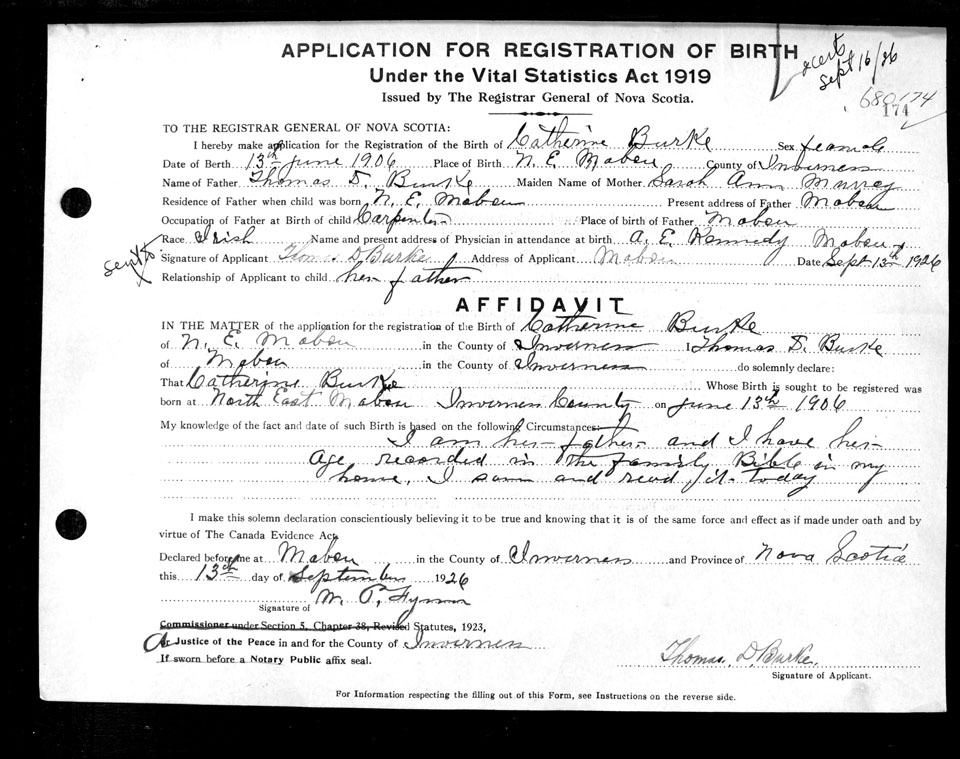 APPLICATION FOR REGISTRATION OF BIRTH
Under the Vital Statistics Act 1919
Issued by The Registrar General of Nova Scotia.
2 certs
Sept 16/26
680174
174
TO THE REGISTRAR GENERAL OF NOVA SCOTIA:
I hereby make application for the Registration of the Birth of Catherine Burke Sex feamale
Date of Birth 13th June 1906 Place of Birth N. E. Mabou County of Inverness
Name of Father Thomas D. Burke Maiden Name of Mother Sarah Ann Murrey
Residence of Father when child was born N. E. Mabou Present address of Father Mabou
Occupation of Father at Birth of child Carpenter Place of birth of Father Mabou
Race Irish Name and present address of Physician in attendance at birth A. E. Kennedy Mabou
Signature of Applicant Thomas D Burke Address of Applicant Mabou Date Sept 13th 1926
Relationship of Applicant to child her father
AFFIDAVIT
IN THE MATTER of the application for the registration of the Birth of Catherine Burke
of N. E. Mabou in the County of Inverness I Thomas D. Burke
of Mabou in the County of Inverness do solemnly declare:
That Catherine Burke Whose Birth is sought to be registered was
born at North East Mabou Inverness County on June 13th 1906
My knowledge of the fact and date of such Birth is based on the following Circumstances:
I am her father and I have her
age recorded in the family Bible in my
home. I sawn and read it today
I make this solemn declaration conscientiously believing it to be true and knowing that it is of the same force and effect as if made under oath and by
virtue of The Canada Evidence Act.
Declared before me at Mabou in the County of Inverness and Province of Nova Scotia
this 13th day of September 1926
Signature of W. P.
Commissioner under Section 5, Chapter 38, Revised Statutes, 1923,
Or Justice of the Peace in and for the County of Inverness
If sworn before a Notary Public affix seal.
Thomas. D. Burke.
Signature of Applicant.
For Information respecting the filling out of this Form, see Instructions on the reverse side.